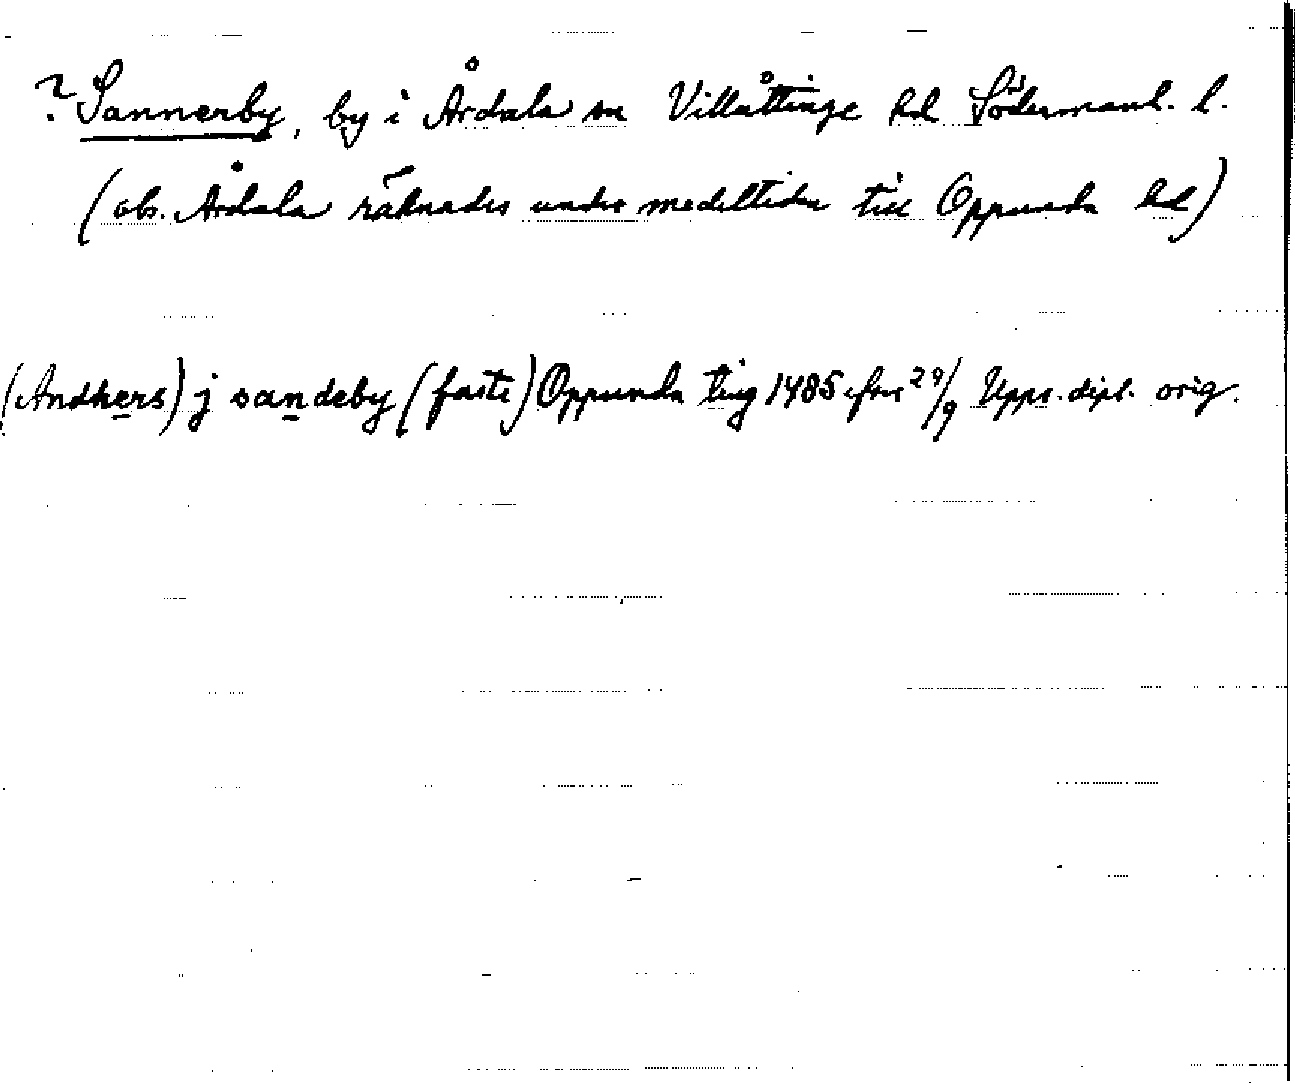 ? Sannerby, by i Årdala sn Villåttinge hd Södermanl. l.
(obs. Årdala räknades under medeltiden till Oppunda hd)
(Andhers) j sandeby (faste) Oppunda ting 1485 efter 29/9 Upps. dipl. orig.